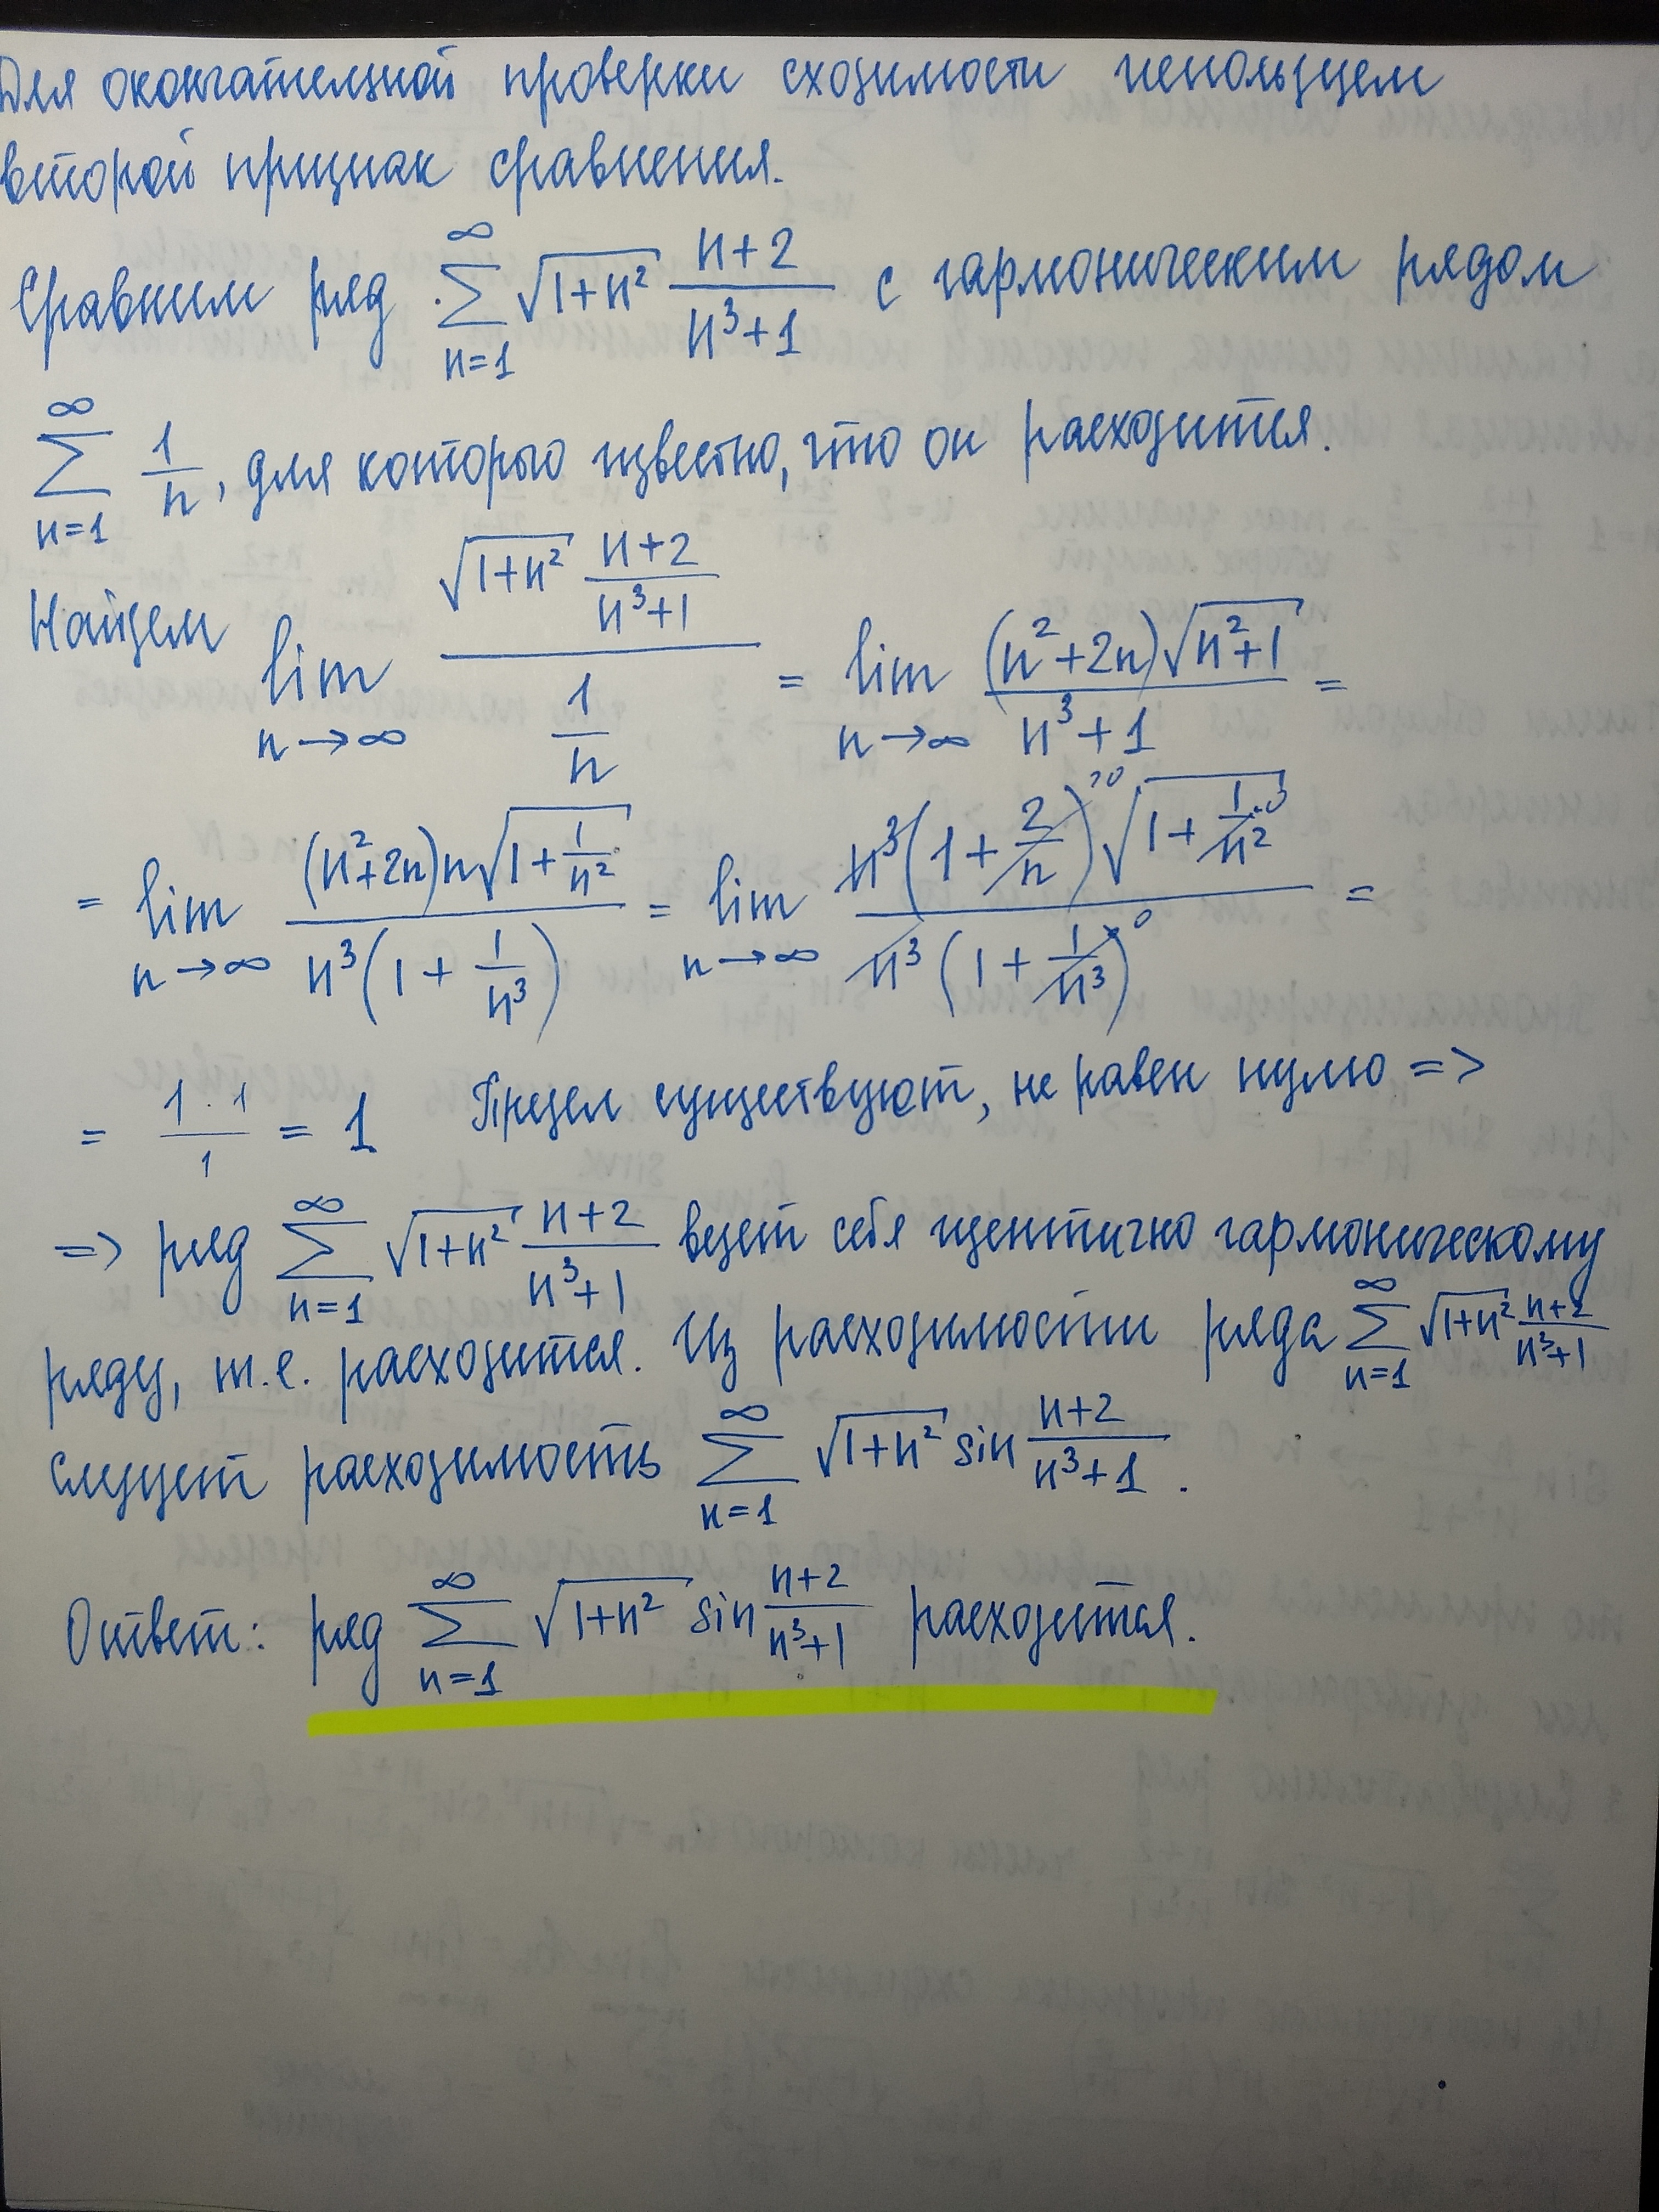 Для окончательной проверки сходимости используем
второй признак сравнения.
Сравним ряд ∑_{n=1}^{∞} √(1+n²) (n+2)/(n³+1) с гармоническим рядом
∑_{n=1}^{∞} 1/n, для которого известно, что он расходится.
Найдем lim_{n→∞} (√(1+n²) (n+2)/(n³+1))/(1/n) = lim_{n→∞} ((n²+2n)√(n²+1))/(n³+1) =
= lim_{n→∞} ((n²+2n)n√(1+1/n²))/(n³(1+1/n³)) = lim_{n→∞} (n³(1+2/n)^{→0}√(1+1/n²^{→0}))/(n³(1+1/n³)^{→0}) =
= (1·1)/1 = 1 Предел существуют, не равен нулю =>
=> ряд ∑_{n=1}^{∞} √(1+n²) (n+2)/(n³+1) ведет себя идентично гармоническому
ряду, т.е. расходится. Из расходимости ряда ∑_{n=1}^{∞} √(1+n²) (n+2)/(n³+1)
следует расходимость ∑_{n=1}^{∞} √(1+n²) sin (n+2)/(n³+1).
Ответ: ряд ∑_{n=1}^{∞} √(1+n²) sin (n+2)/(n³+1) расходится.